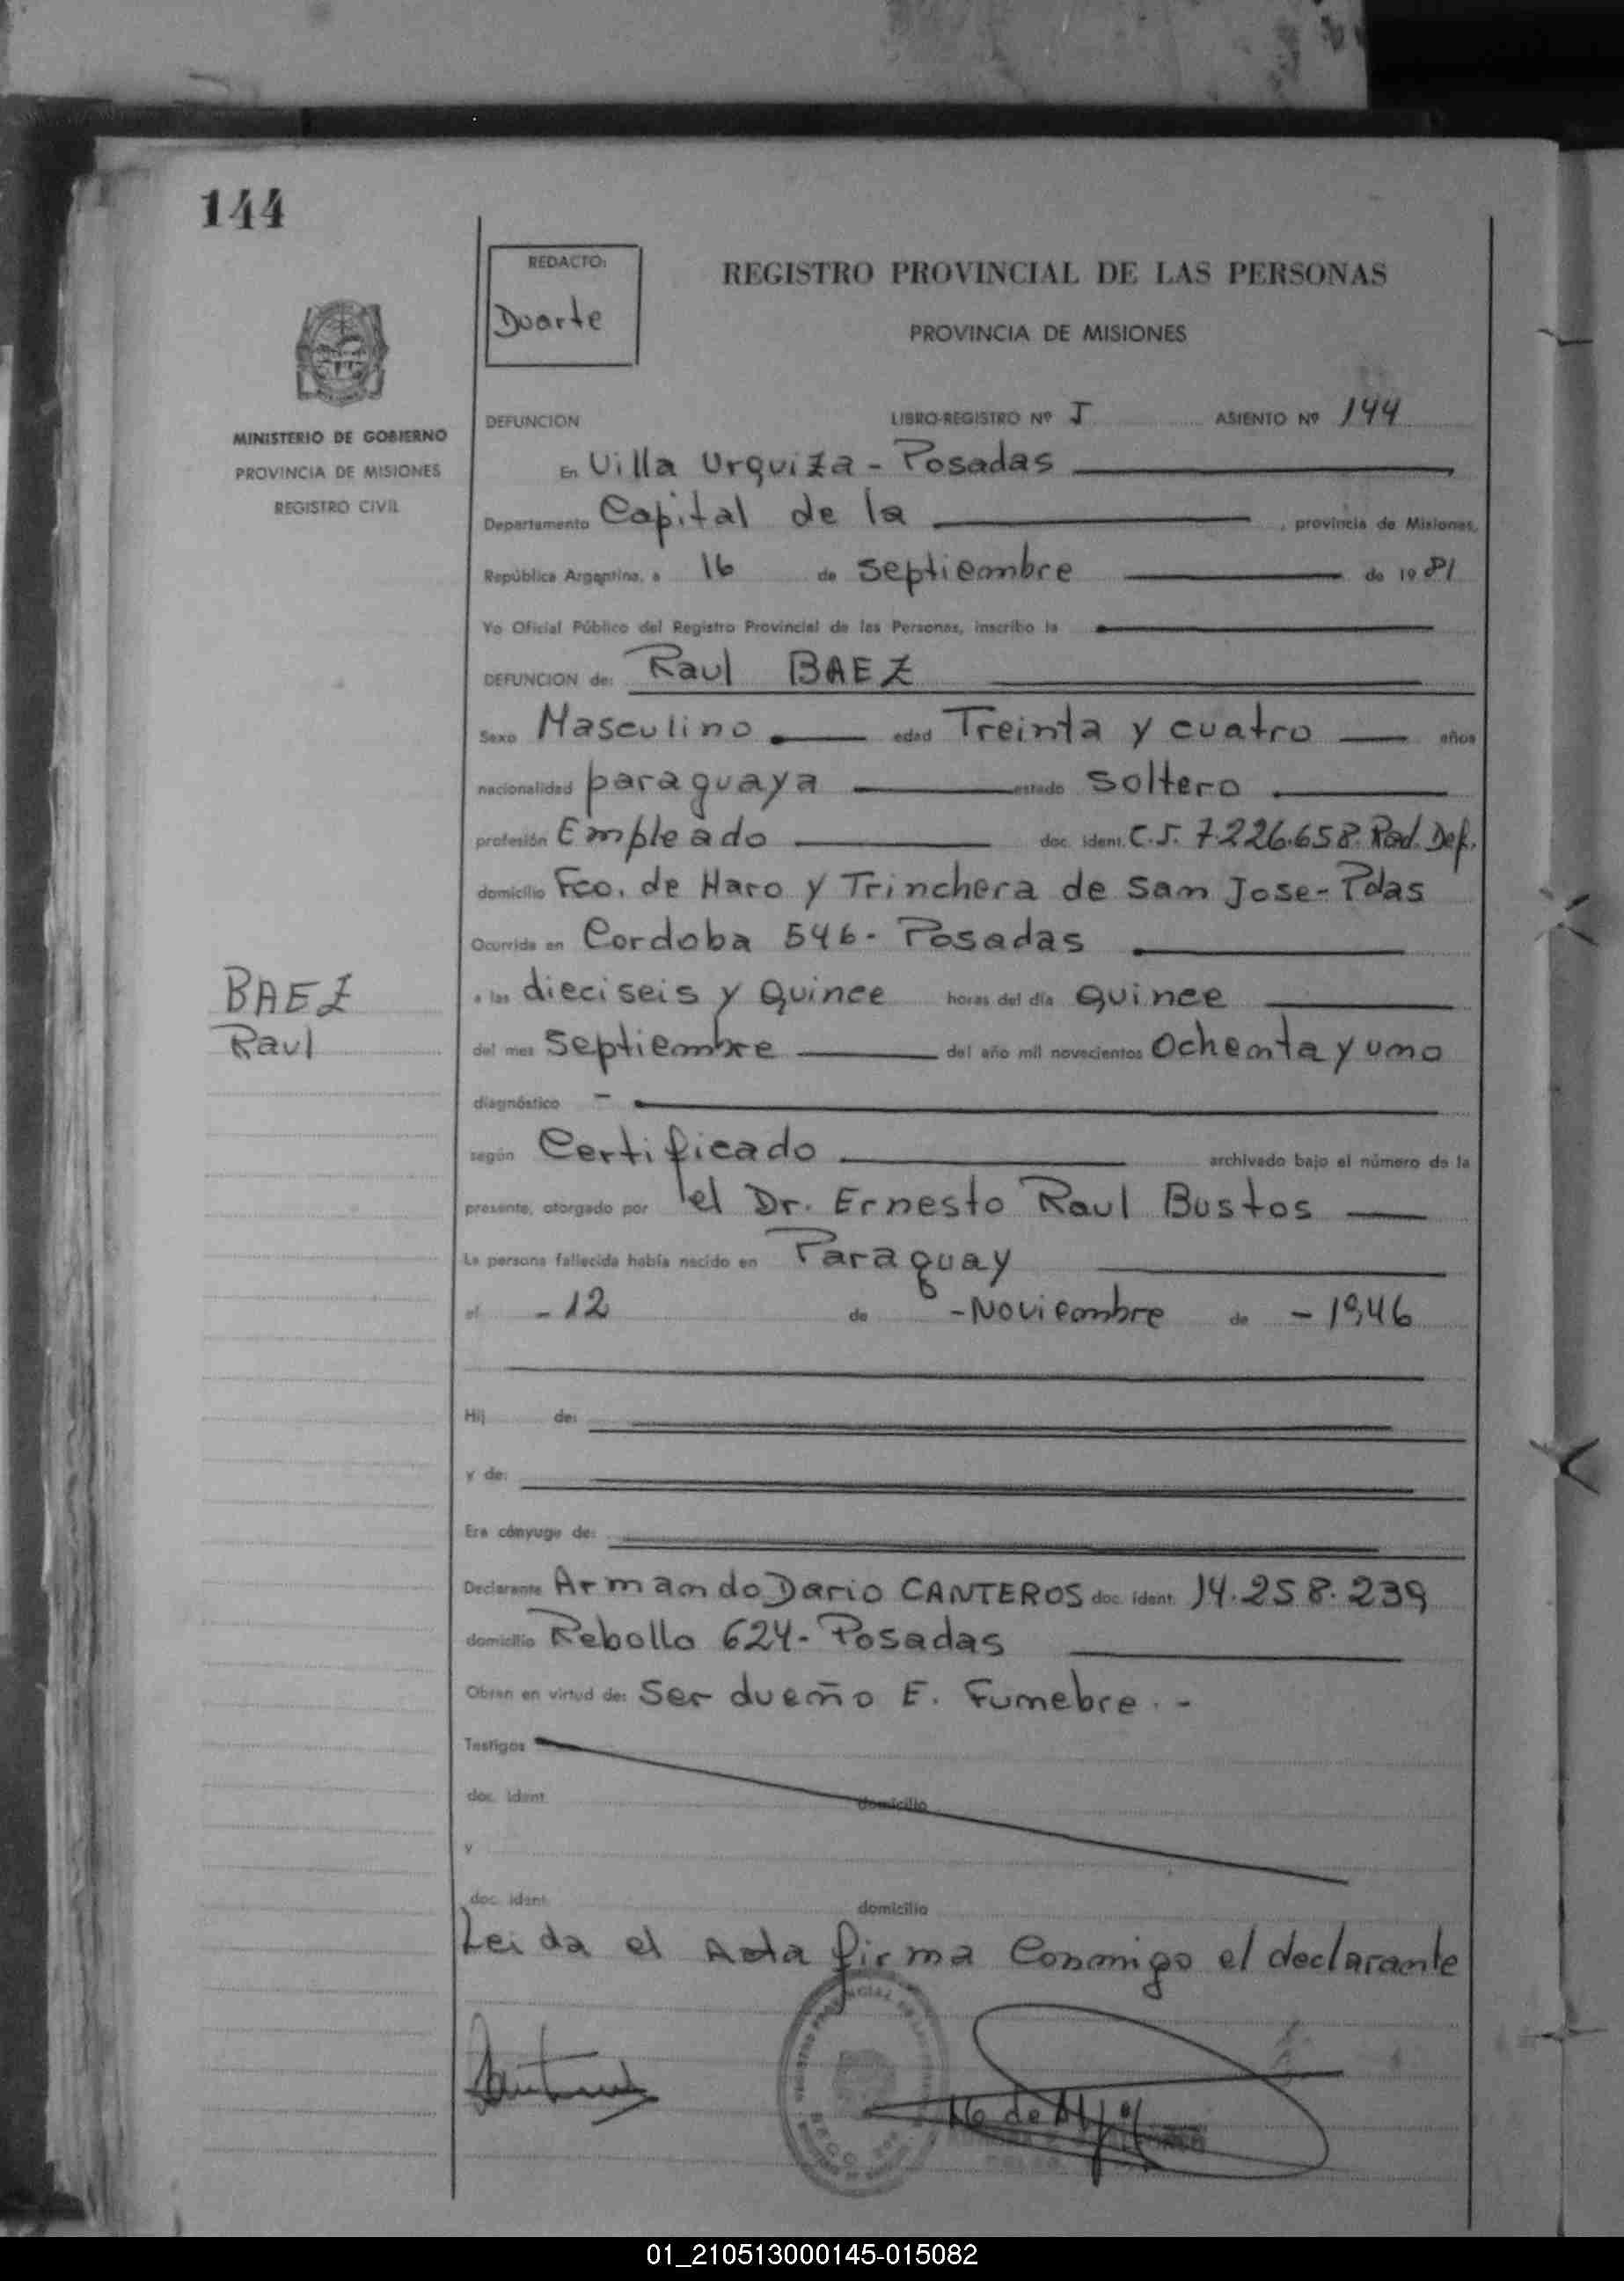 144
REDACTO:
Duarte
REGISTRO PROVINCIAL DE LAS PERSONAS
PROVINCIA DE MISIONES
MINISTERIO DE GOBIERNO
PROVINCIA DE MISIONES
REGISTRO CIVIL
DEFUNCION LIBRO-REGISTRO Nº I ASIENTO Nº 144
En Villa Urquiza - Posadas
Departamento Capital de la , provincia de Misiones,
República Argentina, a 16 de Septiembre de 1981
Yo Oficial Público del Registro Provincial de las Personas, inscribo la
DEFUNCION de: Raul BAEZ
Sexo Masculino edad Treinta y cuatro años
nacionalidad paraguaya estado Soltero
profesión Empleado doc. ident. C.I. 7.226.658. Rad. Def.
domicilio Fco. de Haro y Trinchera de San Jose - Pdas
Ocurrida en Cordoba 546 - Posadas
a las dieciseis y Quince horas del día Quince
del mes Septiembre del año mil novecientos Ochenta y uno
BAEZ
Raul
diagnóstico -
según Certificado archivado bajo el número de la
presente, otorgado por el Dr. Ernesto Raul Bustos
La persona fallecida había nacido en Paraguay
el - 12 de - Noviembre de - 1946
Hij de:
y de:
Era cónyuge de:
Declarante Armando Dario CANTEROS doc. ident. 14.258.239
domicilio Rebollo 624 - Posadas
Obran en virtud de: Ser dueño E. Funebre. -
Testigos
doc. ident. domicilio
y
doc. ident. domicilio
Leida el Acta firma Conmigo el declarante
01_210513000145-015082